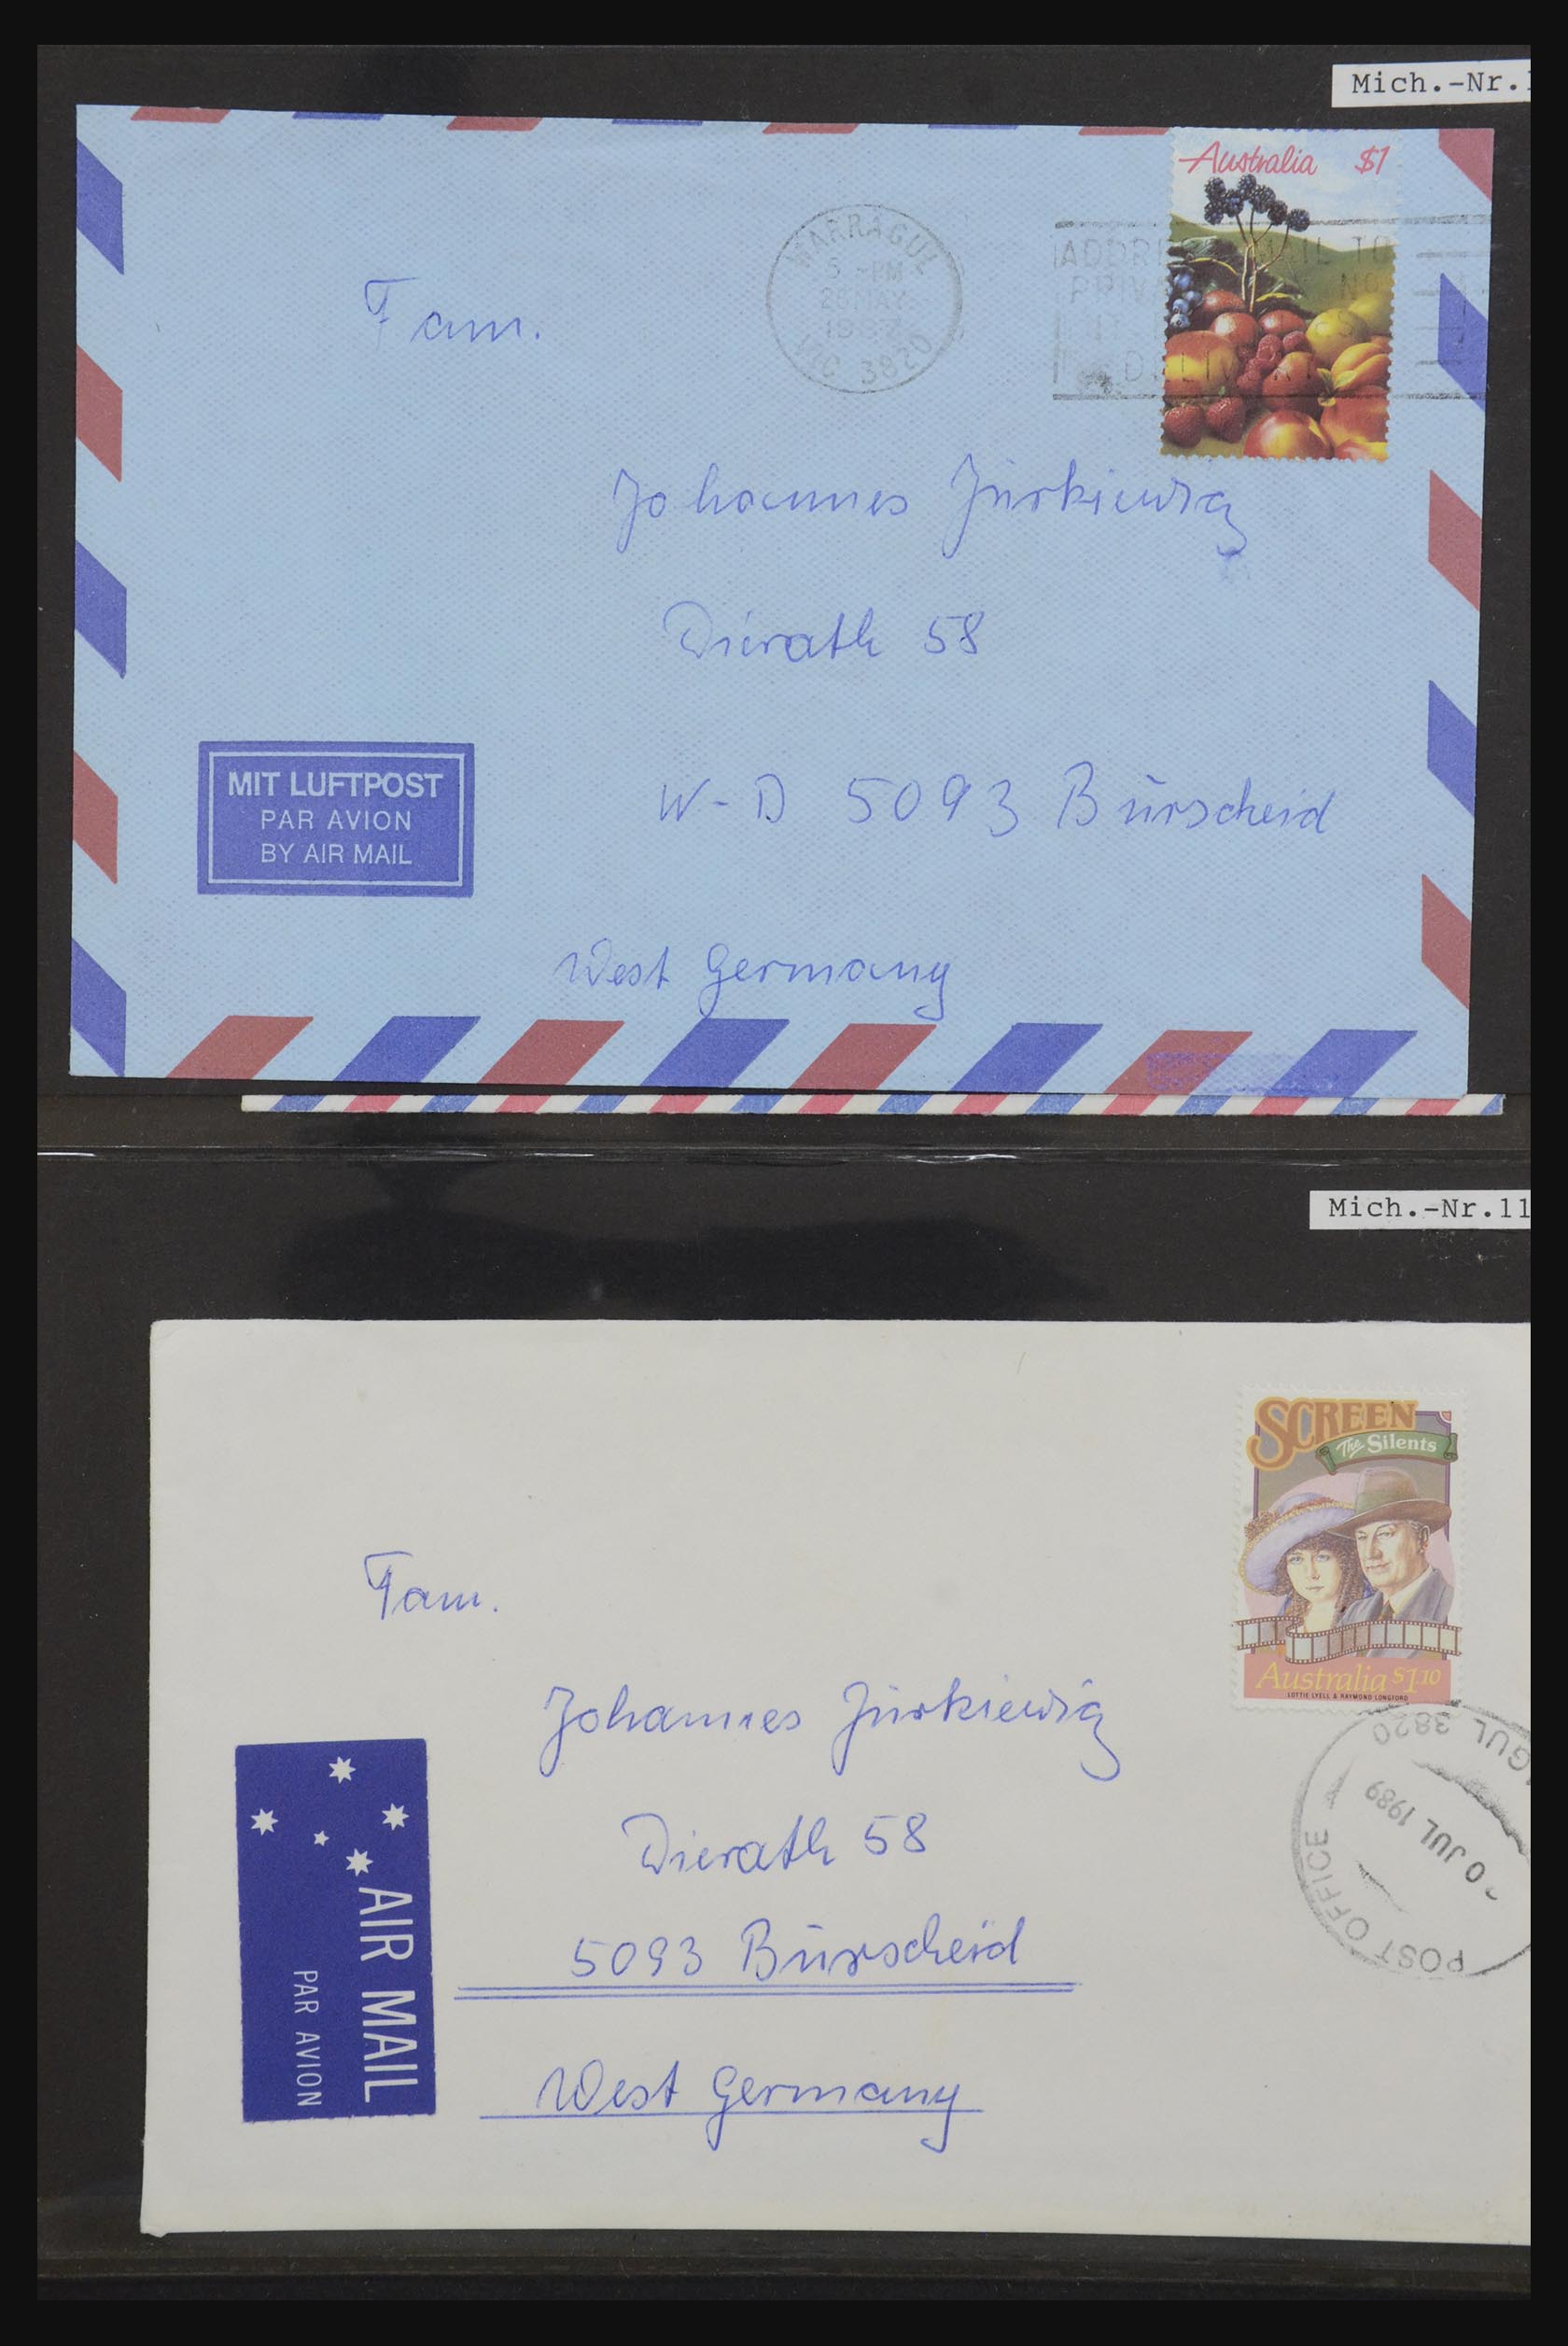 Mich.-Nr.
Australia $1
WARRAGUL
5 -PM
26 MAY
VIC 3820
MAIL TO
Fam.
Johannes Jurkiewicz
Dierath 58
W-D 5093 Burscheid
West Germany
MIT LUFTPOST
PAR AVION
BY AIR MAIL
Mich.-Nr.11
SCREEN
The Silents
Australia $1.10
LOTTIE LYELL & RAYMOND LONGFORD
GUL 3820
0 JUL 1989
POST OFFICE
Fam.
Johannes Jurkiewicz
Dierath 58
5093 Burscheid
West Germany
AIR MAIL
PAR AVION